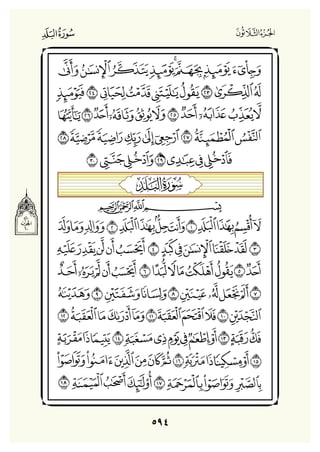 سُورَةُ البَلَدِ
الجُزْءُ الثَّلَاثُونَ
وَجِاْيٓءَ يَوۡمَئِذِۭ بِجَهَنَّمَۚ يَوۡمَئِذٖ يَتَذَكَّرُ ٱلۡإِنسَٰنُ وَأَنَّىٰ
لَهُ ٱلذِّكۡرَىٰ ٢٣ يَقُولُ يَٰلَيۡتَنِي قَدَّمۡتُ لِحَيَاتِي ٢٤ فَيَوۡمَئِذٖ
لَّا يُعَذِّبُ عَذَابَهُۥٓ أَحَدٞ ٢٥ وَلَا يُوثِقُ وَثَاقَهُۥٓ أَحَدٞ ٢٦ يَٰٓأَيَّتُهَا
ٱلنَّفۡسُ ٱلۡمُطۡمَئِنَّةُ ٢٧ ٱرۡجِعِيٓ إِلَىٰ رَبِّكِ رَاضِيَةٗ مَّرۡضِيَّةٗ ٢٨
فَٱدۡخُلِي فِي عِبَٰدِي ٢٩ وَٱدۡخُلِي جَنَّتِي ٣٠
سُورَةُ البَلَدِ
بِسۡمِ ٱللَّهِ ٱلرَّحۡمَٰنِ ٱلرَّحِيمِ
لَآ أُقۡسِمُ بِهَٰذَا ٱلۡبَلَدِ ١ وَأَنتَ حِلُّۢ بِهَٰذَا ٱلۡبَلَدِ ٢ وَوَالِدٖ وَمَا وَلَدَ
٣ لَقَدۡ خَلَقۡنَا ٱلۡإِنسَٰنَ فِي كَبَدٍ ٤ أَيَحۡسَبُ أَن لَّن يَقۡدِرَ عَلَيۡهِ
أَحَدٞ ٥ يَقُولُ أَهۡلَكۡتُ مَالٗا لُّبَدًا ٦ أَيَحۡسَبُ أَن لَّمۡ يَرَهُۥٓ أَحَدٌ
٧ أَلَمۡ نَجۡعَل لَّهُۥ عَيۡنَيۡنِ ٨ وَلِسَانٗا وَشَفَتَيۡنِ ٩ وَهَدَيۡنَٰهُ
ٱلنَّجۡدَيۡنِ ١٠ فَلَا ٱقۡتَحَمَ ٱلۡعَقَبَةَ ١١ وَمَآ أَدۡرَىٰكَ مَا ٱلۡعَقَبَةُ ١٢
فَكُّ رَقَبَةٍ ١٣ أَوۡ إِطۡعَٰمٞ فِي يَوۡمٖ ذِي مَسۡغَبَةٖ ١٤ يَتِيمٗا ذَا مَقۡرَبَةٍ
١٥ أَوۡ مِسۡكِينٗا ذَا مَتۡرَبَةٖ ١٦ ثُمَّ كَانَ مِنَ ٱلَّذِينَ ءَامَنُواْ وَتَوَاصَوۡاْ
بِٱلصَّبۡرِ وَتَوَاصَوۡاْ بِٱلۡمَرۡحَمَةِ ١٧ أُوْلَٰٓئِكَ أَصۡحَٰبُ ٱلۡمَيۡمَنَةِ ١٨
٥٩٤